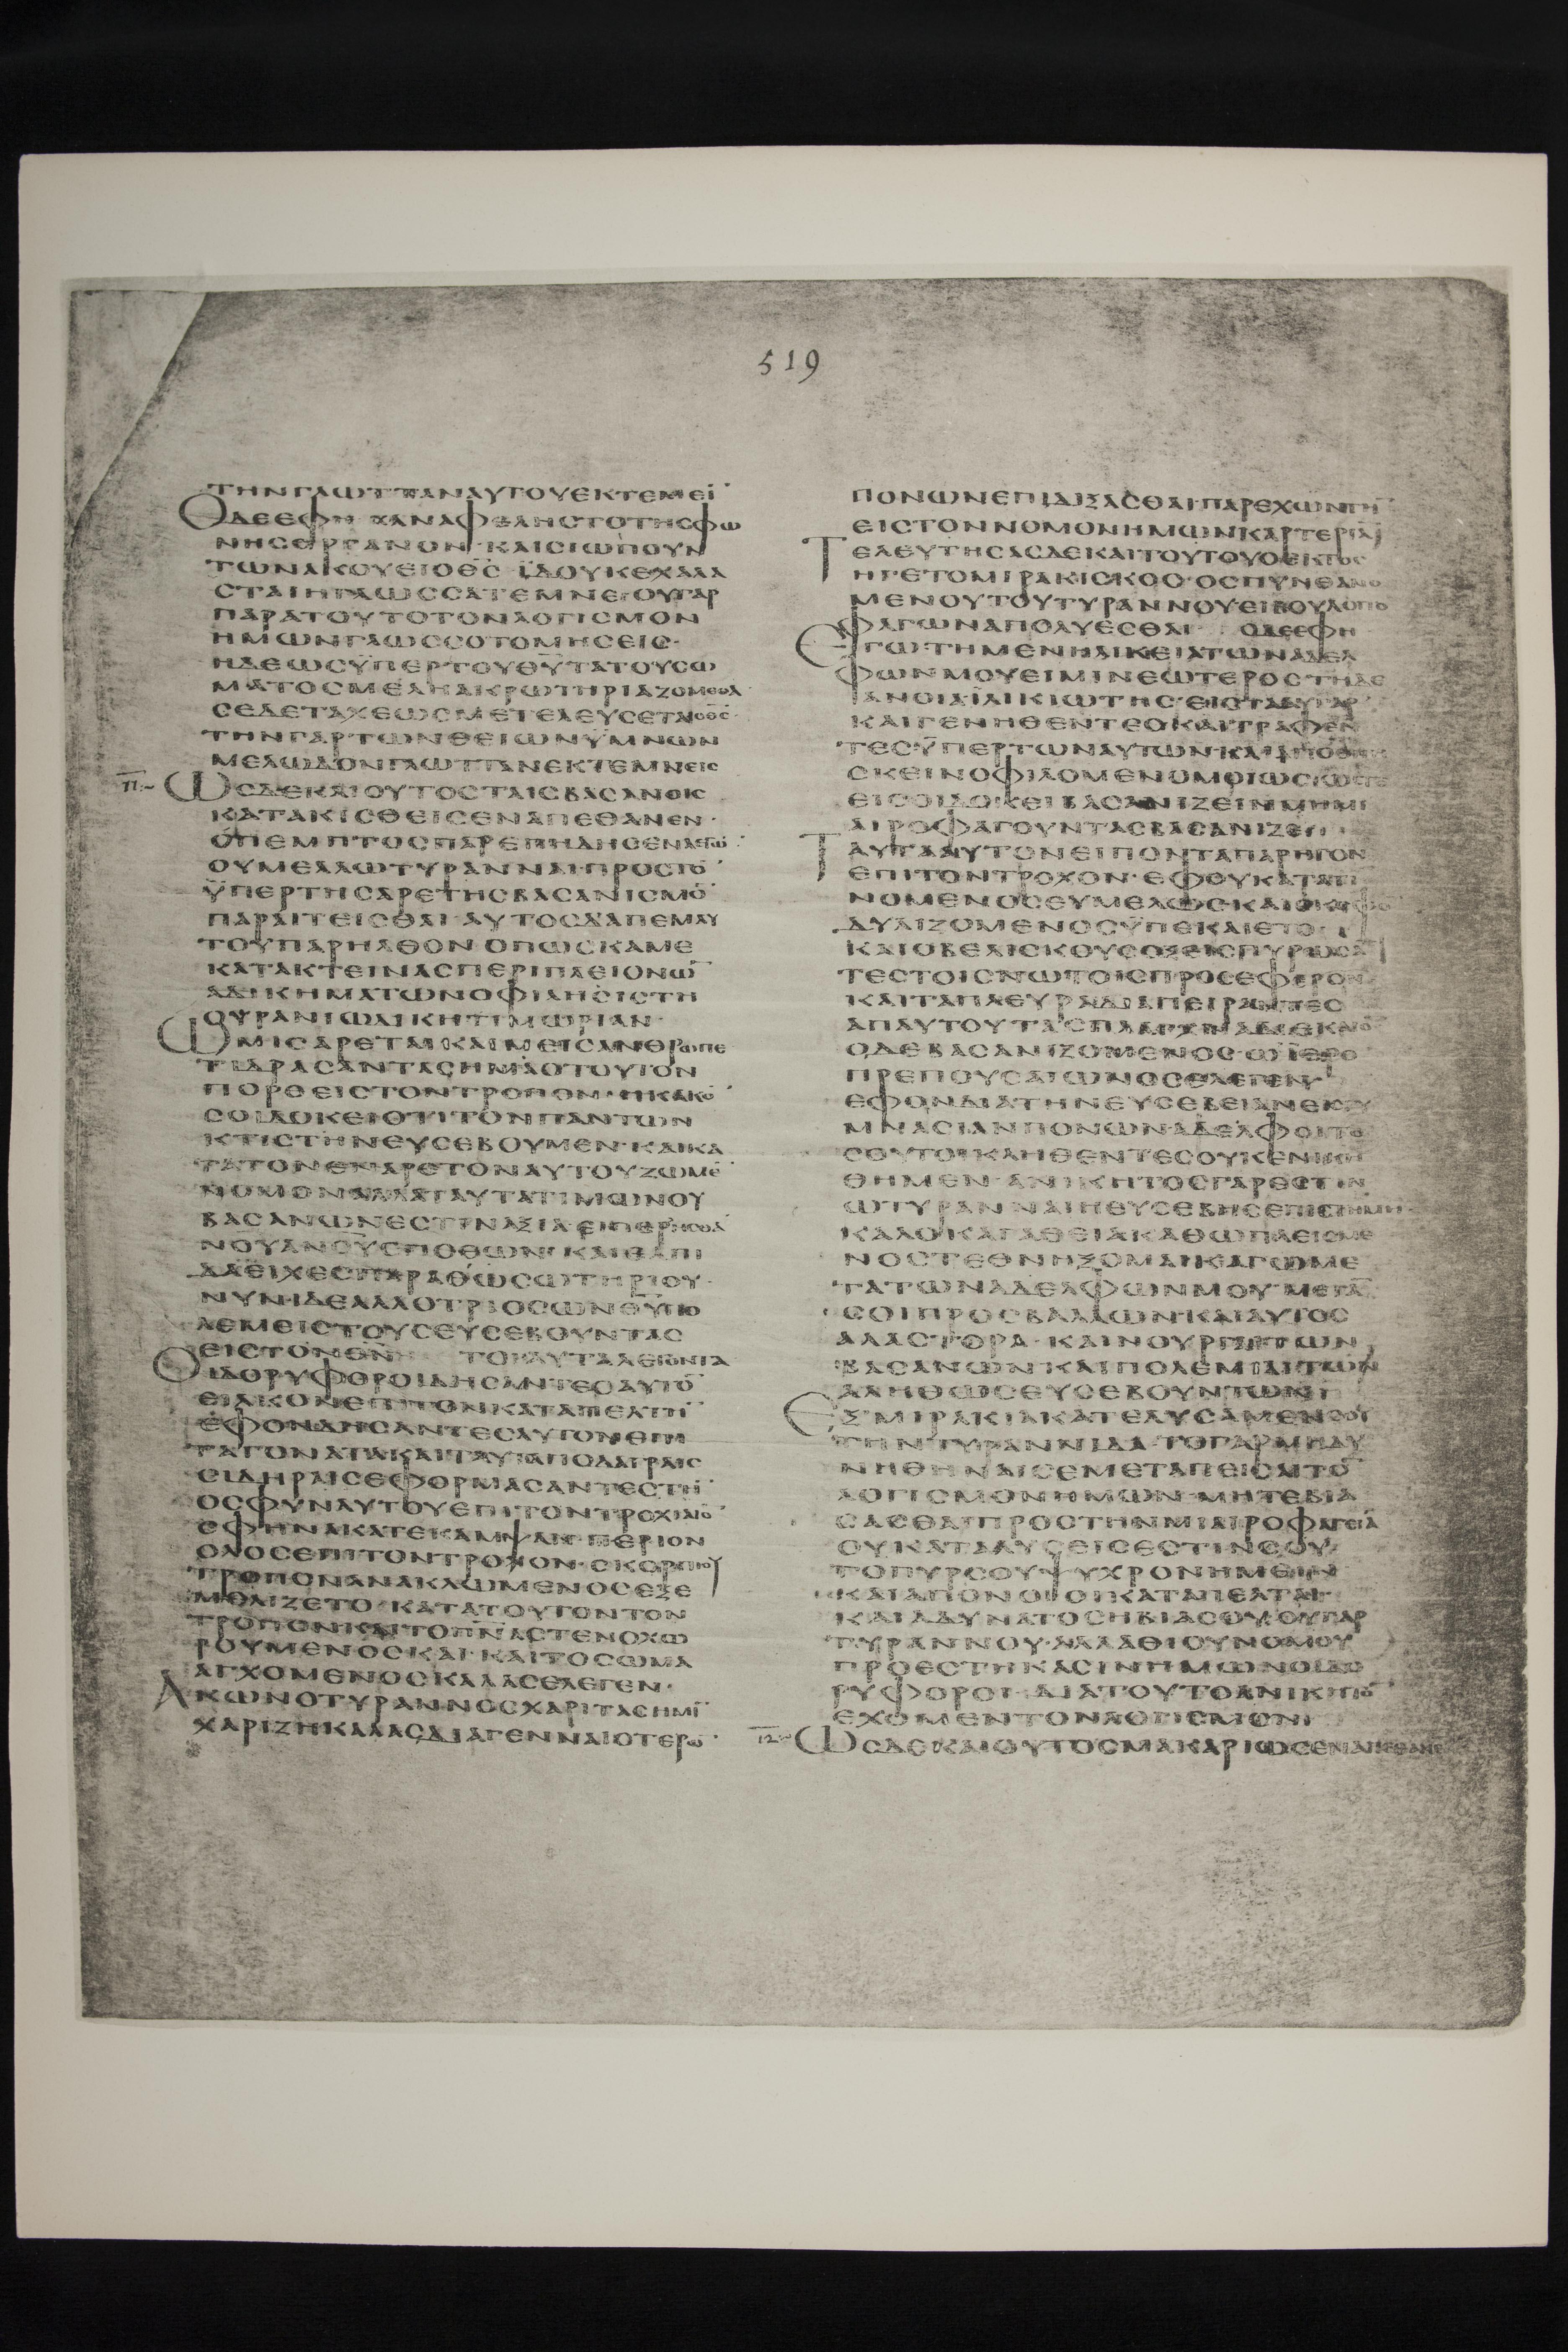 519
ΤΗΝΓΛΩΤΤΑΝΑΥΤΟΥΕΚΤΕΜΕΙ̅
ΟΔΕΕΦΗ ΚΑΝΑΦΕΛΗΣΤΟΤΗΣΦΩ
ΝΗΣΟΡΓΑΝΟΝ·ΚΑΙΣΙΩΠΟΥΝ
ΤΩΝΑΚΟΥΕΙΟΘ̅Σ ΙΔΟΥΚΕΧΑΛΑ
ΣΤΑΙΗΓΛΩΣΣΑΤΕΜΝΕΟΥΓΑΡ
ΠΑΡΑΤΟΥΤΟΤΟΝΛΟΓΙΣΜΟΝ
ΗΜΩΝΓΛΩΣΣΟΤΟΜΗΣΕΙΣ·
ΗΔΕΩΣΫΠΕΡΤΟΥΘ̅Υ̅ΤΑΤΟΥΣΩ
ΜΑΤΟΣΜΕΛΗΑΚΡΩΤΗΡΙΑΖΟΜΕΘΑ
ΣΕΔΕΤΑΧΕΩΣΜΕΤΕΛΕΥΣΕΤΑΙΟΘ̅Σ̅
ΤΗΝΓΑΡΤΩΝΘΕΙΩΝΫΜΝΩΝ
ΜΕΛΩΔΟΝΓΛΩΤΤΑΝΕΚΤΕΜΝΕΙΣ
11.- ΩΣΔΕΚΑΙΟΥΤΟΣΤΑΙΣΒΑΣΑΝΟΙΣ
ΚΑΤΑΚΙΣΘΕΙΣΕΝΑΠΕΘΑΝΕΝ·
ΟΠΕΜΠΤΟΣΠΑΡΕΠΗΔΗΣΕΝΛΕΓΩ̅
ΟΥΜΕΛΛΩΤΥΡΑΝΝΑΙ·ΠΡΟΣΤΟ̅
ΫΠΕΡΤΗΣΑΡΕΤΗΣΒΑΣΑΝΙΣΜΟ̅
ΠΑΡΑΙΤΕΙΣΘΑΙ·ΑΥΤΟΣΔΑΠΕΜΑΥ
ΤΟΥΠΑΡΗΛΘΟΝΟΠΩΣΚΑΜΕ
ΚΑΤΑΚΤΕΙΝΑΣΠΕΡΙΠΛΕΙΟΝΩ̅
ΑΔΙΚΗΜΑΤΩΝΟΦΙΛΗΣΙΣΤΗ
ΟΥΡΑΝΙΩΔΙΚΗΤΙΜΩΡΙΑΝ·
ΩΜΙΣΑΡΕΤΑΙΚΑΙΜΕΙΣΑΝΘΡΩΠΕ
ΤΙΔΡΑΣΑΝΤΑΣΗΜΑΣΤΟΥΤΟΝ
ΠΟΡΘΕΙΣΤΟΝΤΡΟΠΟΝ·ΗΚΑΚΟ̅
ΣΟΙΔΟΚΕΙΟΤΙΤΟΝΠΑΝΤΩΝ
ΚΤΙΣΤΗΝΕΥΣΕΒΟΥΜΕΝ·ΚΑΙΚΑ
ΤΑΤΟΝΕΝΑΡΕΤΟΝΑΥΤΟΥΖΩΜΕ̅
ΝΟΜΟΝΑΛΛΑΤΑΥΤΑΤΙΜΩΝΟΥ
ΒΑΣΑΝΩΝΕΣΤΙΝΑΞΙΑ
ΝΥΝ·ΙΔΕΑΛΛΟΤΡΙΟΣΩΝΘ̅Υ̅ΠΟ
ΛΕΜΕΙΣΤΟΥΣΕΥΣΕΒΟΥΝΤΑΣ
ΕΙΣΤΟΝΘ̅Ν̅ ΤΟΙΑΥΤΑΛΕΓΟΝΤΑ
ΟΙΔΟΡΥΦΟΡΟΙΔΗΣΑΝΤΕΣΑΥΤΟ̅
ΟΣΦΥΝΑΥΤΟΥΕΠΙΤΟΝΤΡΟΧΙΑΙΟ̅
ΟΛΟΣΕΠΙΤΟΝΤΡΟΧΟΝ·ΣΚΟΡΠΙΟΥ
ΤΡΟΠΟΝΑΝΑΚΛΩΜΕΝΟΣΕΞΕ
ΜΕΛΙΖΕΤΟ·ΚΑΤΑΤΟΥΤΟΝΤΟΝ
ΤΡΟΠΟΝΚΑΙΤΟΠ̅Ν̅ΑΣΤΕΝΟΧΩ
ΡΟΥΜΕΝΟΣΚΑΙ·ΚΑΙΤΟΣΩΜΑ
ΑΓΧΟΜΕΝΟΣΚΑΛΑΣΕΛΕΓΕΝ·
ΑΚΩΝΟΤΥΡΑΝΝΟΣΧΑΡΙΤΑΣΗΜΙ̅
ΧΑΡΙΖΗΚΑΛΑΣΔΙΑΓΕΝΝΑΙΟΤΕΡΩ̅
ΠΟΝΩΝΕΠΙΔΙΞΑΣΘΑΙ·ΠΑΡΕΧΩΝΤΗ̅
ΕΙΣΤΟΝΝΟΜΟΝΗΜΩΝΚΑΡΤΕΡΙΑ̅
ΤΕΛΕΥΤΗΣΑΣΔΕΚΑΙΤΟΥΤΟΥΟΕΚΤΟΣ
ΗΓΕΤΟΜΙΡΑΚΙΣΚΟΣ·ΟΣΠΥΝΘΑΝΟ
ΜΕΝΟΥΤΟΥΤΥΡΑΝΝΟΥΕΙΒΟΥΛΟΙΤΟ
ΦΑΓΩΝΑΠΟΛΥΕΣΘΑΙ ΟΔΕΕΦΗ
ΕΓΩΤΗΜΕΝΗΛΙΚΕΙΑΤΩΝΑΔΕΛ
ΦΩΝΜΟΥΕΙΜΙΝΕΩΤΕΡΟΣΤΗΔΕ
ΚΑΙΓΕΝΗΘΕΝΤΕΣΚΑΙΤΡΑΦΕΝ
ΤΕΣΫΠΕΡΤΩΝΑΥΤΩΝ
ΕΙΣΟΙΔΟΚΕΙΒΑΣΑΝΙΖΕΙΝΜΗΜΙ
ΑΙΡΟΦΑΓΟΥΝΤΑΣΒΑΣΑΝΙΖΕ
ΤΑΥΤΑΑΥΤΟΝΕΙΠΟΝΤΑΠΑΡΗΓΟΝ
ΕΠΙΤΟΝΤΡΟΧΟΝ·ΕΦΟΥΚΑΤΑΤΙ
ΝΟΜΕΝΟΣΕΥΜΕΛΩΣΚΑΙ
ΔΥΛΙΖΟΜΕΝΟΣΫΠΕΚΑΙΕΤΟ
ΚΑΙΟΒΕΛΙΣΚΟΥΣΟΞΕΙΣΠΥΡΩΣΑ̅
ΤΕΣΤΟΙΣΝΩΤΟΙΣΠΡΟΣΕΦΕΡΟΝ
ΚΑΙΤΑΠΛΕΥΡΑΔΙΑΠΕΙΡΑΝΤΕΣ
ΑΠΑΥΤΟΥΤΑΣΠΛΑΓΧΝΑ
ΟΔΕΒΑΣΑΝΙΖΟΜΕΝΟΣ·ΩΪΕΡΟ
ΠΡΕΠΟΥΣΑΙΩΝΟΣΕΛΕΓΕΝ
ΕΦΟΝΔΙΑΤΗΝΕΥΣΕΒΕΙΑΝΕΙΣΓΥ
ΜΝΑΣΙΑΝΠΟΝΩΝ·ΑΔΕΛΦΟΙΤΟ
ΣΟΥΤΟΙΚΛΗΘΕΝΤΕΣΟΥΚΕΝΙΚΗ
ΘΗΜΕΝ·ΑΝΙΚΗΤΟΣΓΑΡΕΣΤΙΝ
ΩΤΥΡΑΝΝΑΙΗΕΥΣΕΒΗΣΕΠΙΣΤΗΜΗ
ΚΑΛΟΚΑΓΑΘΕΙΑΚΑΘΩΠΛΕΙΣΜΕ
ΝΟΣΤΕΘΝΗΞΟΜΑΙΚΑΓΩΜΕ
ΤΑΤΩΝΑΔΕΛΦΩΝΜΟΥ·ΜΕΓΑ̅
ΣΟΙΠΡΟΣΒΑΛΛΩΝ·ΚΑΙΑΥΤΟΣ
ΑΛΑΣΤΟΡΑ·ΚΑΙΝΟΥΡΓΕΤΩΝ
ΒΑΣΑΝΩΝΚΑΙΠΟΛΕΜΙΑΙΤΩΝ
ΑΛΗΘΩΣΕΥΣΕΒΟΥΝΤΩΝ
ΕΞΜΙΡΑΚΙΑΚΑΤΕΛΥΣΑΜΕΝΣΟΥ
ΤΗΝΤΥΡΑΝΝΙΔΑ·ΤΟΓΑΡΜΗΔΥ
ΝΗΘΗΝΑΙΣΕΜΕΤΑΠΕΙΣΑΙΤΟ̅
ΛΟΓΙΣΜΟΝΗΜΩΝ·ΜΗΤΕΒΙΑ
ΣΑΣΘΑΙΠΡΟΣΤΗΝΜΙΑΙΡΟΦΑΓΕΙΑ
ΟΥΚΑΤΑΛΥΣΕΙΣΕΣΤΙΝΣΟΥ
ΤΟΠΥΡΣΟΥΨΥΧΡΟΝΗΜΕΙΝ
ΚΑΙΑΠΟΝΟΙΟΙΚΑΤΑΠΕΛΤΑΙ
ΚΑΙΑΔΥΝΑΤΟΣΗΒΙΑΣΟΥ·ΟΥΓΑΡ
ΤΥΡΑΝΝΟΥ·ΑΛΛΑΘΙΟΥΝΟΜΟΥ
ΠΡΟΕΣΤΗΚΑΣΙΝΗΜΩΝΟΙΔΟ
ΡΥΦΟΡΟΙ·ΔΙΑΤΟΥΤΟΑΝΙΚΗΤΟ̅
ΕΧΟΜΕΝΤΟΝΛΟΓΙΣΜΟΝ
12.- ΩΣΔΕΚΑΙΟΥΤΟΣΜΑΚΑΡΙΩΣΕΝΑΠΕΘΑΝΕ